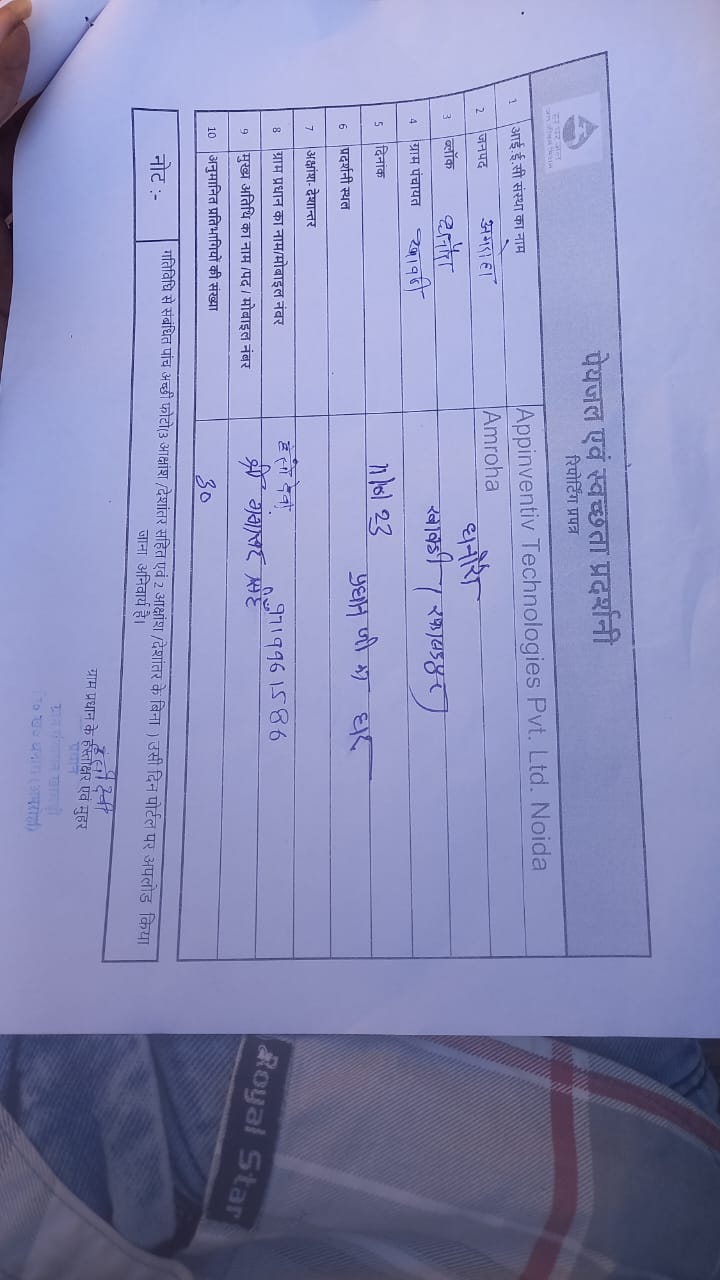 पेयजल एवं स्वच्छता प्रदर्शनी
रिपोर्टिंग प्रपत्र
1 आई ई सी संस्था का नाम Appinventiv Technologies Pvt. Ltd. Noida
2 जनपद अमरोहा Amroha
3 ब्लॉक धनौरा धनौरा
4 ग्राम पंचायत
5 दिनांक 11/6/23
6 प्रदर्शनी स्थल प्रधान जी का घर
7 अक्षांश-देशान्तर
8 ग्राम प्रधान का नाम/मोबाइल नंबर 9719961586
9 मुख्य अतिथि का नाम /पद / मोबाइल नंबर श्री
10 अनुमानित प्रतिभागियो की संख्या 30
नोट :- गतिविधि से संबंधित पांच अच्छी फोटो(3 आक्षांश /देशांतर सहित एवं 2 आक्षांश /देशांतर के बिना ) उसी दिन पोर्टल पर अपलोड किया
जाना अनिवार्य है।
ग्राम प्रधान के हस्ताक्षर एवं मुहर
Royal Star